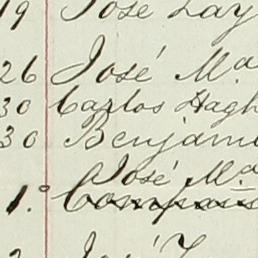 19 José Lay
26 José Mª
30 Carlos Hagh
30 Benjami
José Mª
1.º
2 José